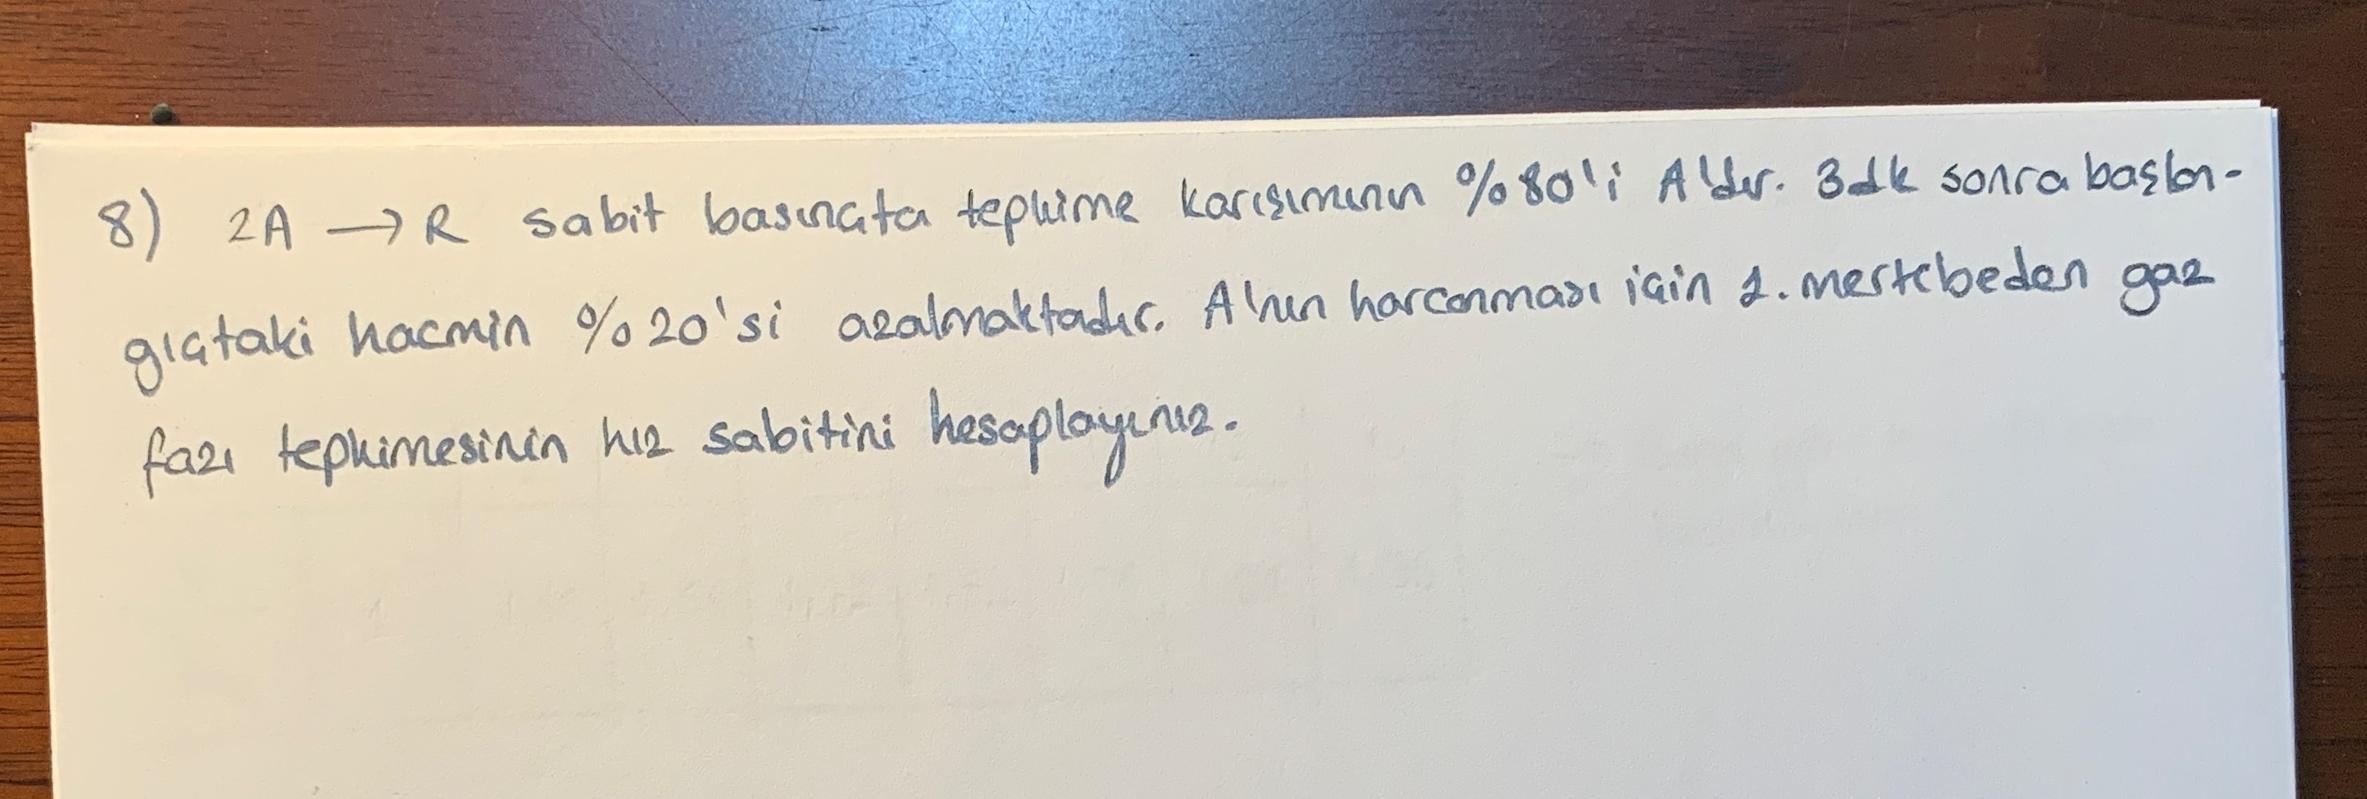 8) 2A → R sabit basınçta tepkime karışımının %80'i A'dır. 3dk sonra başlan-
gıçtaki hacmin %20'si azalmaktadır. A'nın harcanması için 1. mertebeden gaz
fazı tepkimesinin hız sabitini hesaplayınız.